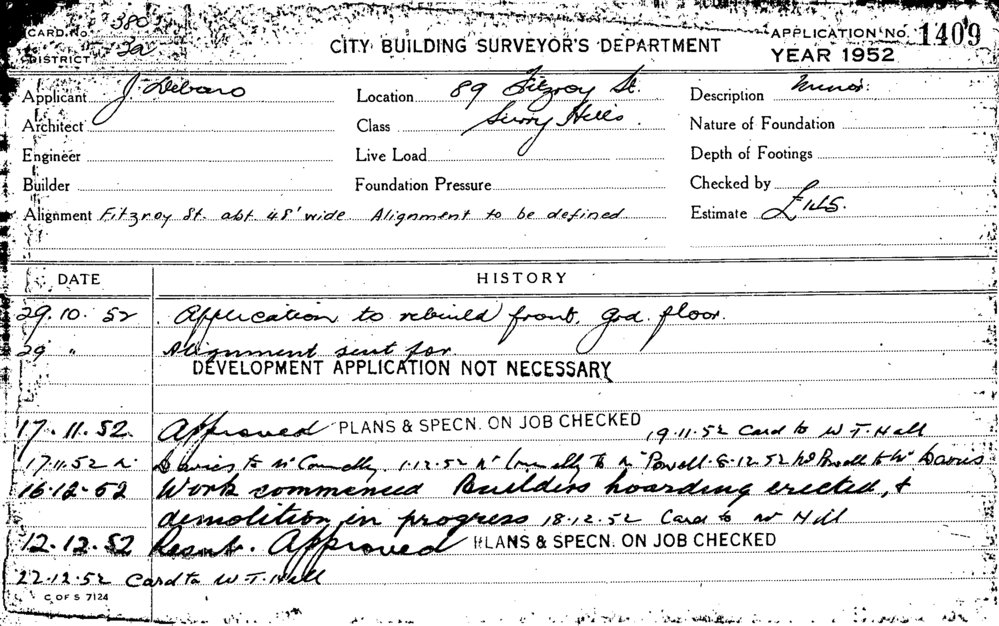 CARD No. 380
DISTRICT 2a
CITY BUILDING SURVEYOR'S DEPARTMENT
APPLICATION No. 1409
YEAR 1952
Applicant J.
Location 89 Fitzroy St.
Description Minor.
Architect
Class Surry Hills.
Nature of Foundation
Engineer
Live Load
Depth of Footings
Builder
Foundation Pressure
Checked by
Alignment Fitzroy St. abt 48' wide Alignment to be defined
Estimate
DATE HISTORY
29.10.52 Application to rebuild front, grd. floor.
29 " Alignment sent for.
DEVELOPMENT APPLICATION NOT NECESSARY
17.11.52. Approved PLANS & SPECN. ON JOB CHECKED 19.11.52 Card to W T. Hall
17.11.52 Mr Davies to Mr Connelly. 1.12.52 Mr Connelly to Mr Powell 8.12.52 Mr Powell to Mr Davies
16.12.52 Work commenced Builders hoarding erected, &
demolition in progress 18.12.52 Card to Mr Hill
12.12.52 Resub. Approved PLANS & SPECN. ON JOB CHECKED
22.12.52 Card to W.T. Hall
C OF S 7124